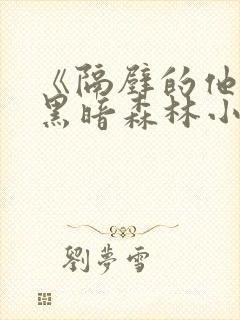 《隔壁的他
黑暗森林小
劉夢雪